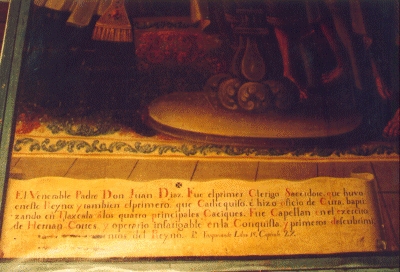 El Venerable Padre Don Juan Diaz. Fue el primer Clerigo Sacerdote, que huvo
en este Reyno; y tambien el primero, que Catequisó, é hizo oficio de Cura, bapti
zando en Tlaxcala álos quatro principales Caciques. Fue Capellan en el exercito
de Hernan Cortes, y operario infatigable en la Conquista, y primeros descubrimi
del Reyno. P. Torquemada Libro 4. Capitulo